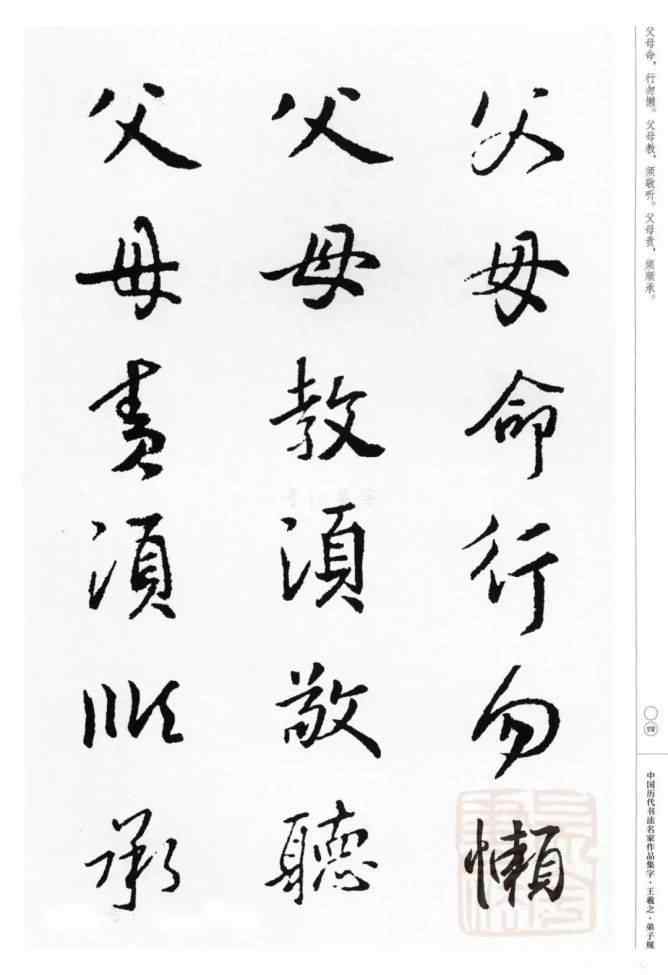 父母命，行勿懒。父母教，须敬听。父母责，须顺承。
父母命行勿懶
父母教須敬聽
父母責須順承
〇四
中国历代书法名家作品集字·王羲之·弟子规